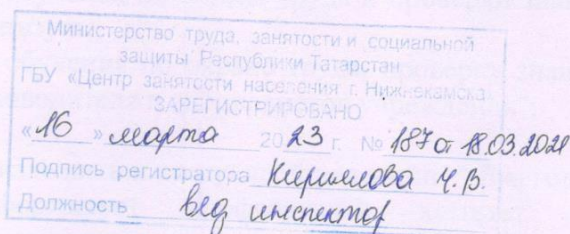 Министерство труда, занятости и социальной
защиты Республики Татарстан
ГБУ «Центр занятости населения г. Нижнекамска
ЗАРЕГИСТРИРОВАНО
«16» марта 2023 г. № 187 от 18.03.2021
Подпись регистратора Кириллова Ч.В.
Должность вед инспектор